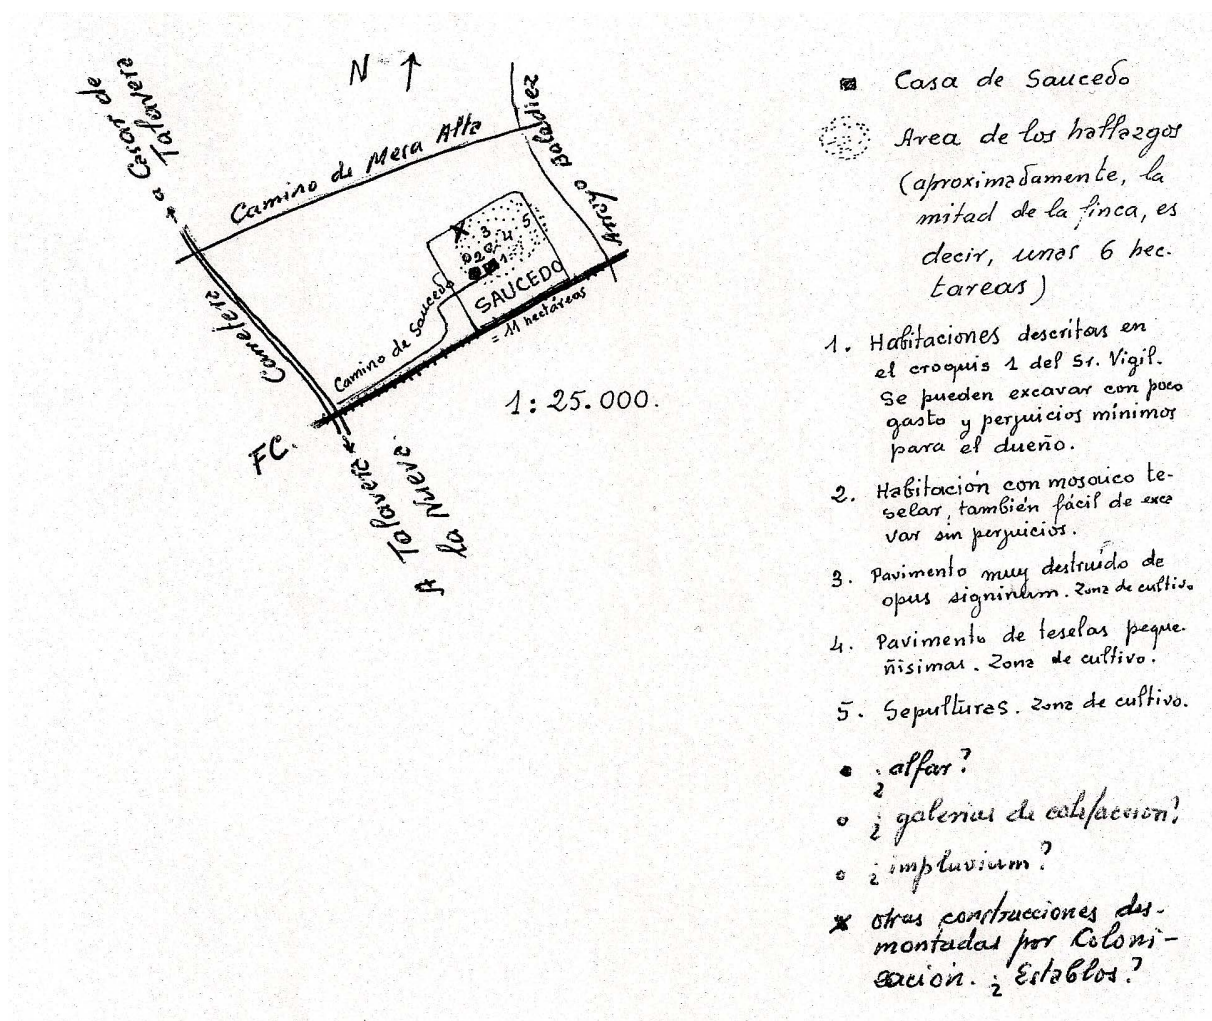 N
a Casar de
Talavera
Camino de Mesa Alta
Arroyo Baladiez
Carretera
Camino de Saucedo
3
5
4
2
1
SAUCEDO
= 11 hectáreas
1:25.000.
FC.
A Talavera
la Nueva.
Casa de Saucedo
Area de los hallazgos
(aproximadamente, la
mitad de la finca, es
decir, unas 6 hec-
tareas)
1. Habitaciones descritas en
el croquis 1 del Sr. Vigil.
Se pueden excavar con poco
gasto y perjuicios mínimos
para el dueño.
2. Habitación con mosaico te-
selar, también fácil de exca
var sin perjuicios.
3. Pavimento muy destruído de
opus signinum. Zona de cultivo
4. Pavimento de teselas peque-
ñisimas. Zona de cultivo.
5. Sepulturas. Zona de cultivo.
¿alfar?
¿galerias de calefaccion?
¿impluvium?
x otras construcciones des-
montadas por Coloni-
zación. ¿Establos?